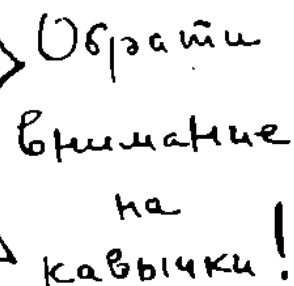 Обрати
внимание
на
кавычки!